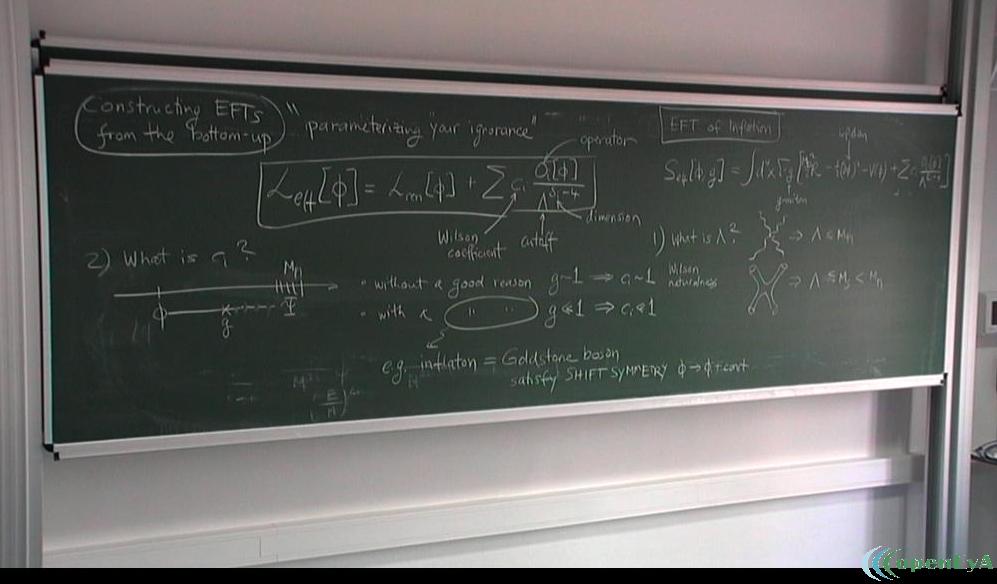 Constructing EFTs
from the bottom-up
"parameterizing your ignorance"
operator
L_eff[φ] = L_ren[φ] + Σ c_i O_i[φ] / Λ^{δ_i-4}
Wilson
coefficient
cutoff
dimension
2) What is c_i?
M_pl
φ
g
Ψ
• without a good reason g~1 ⇒ c_i~1
Wilson
naturalness
• with a " " g≪1 ⇒ c_i≪1
e.g. inflaton = Goldstone boson
satisfy SHIFT SYMMETRY φ→φ+const
EFT of Inflation
S_eff[φ,g] = ∫d⁴x √-g [
graviton
1) What is Λ?
⇒ Λ ≲ M_pl
⇒ Λ ≲ M_s < M_pl